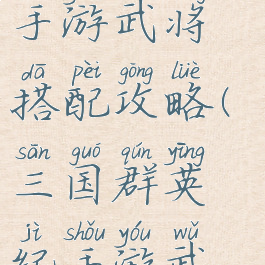 手游武将
dā pèi gōng lüè
搭配攻略(
sān guó qún yīng
三国群英
jì shǒu yóu wǔ
纪手游武